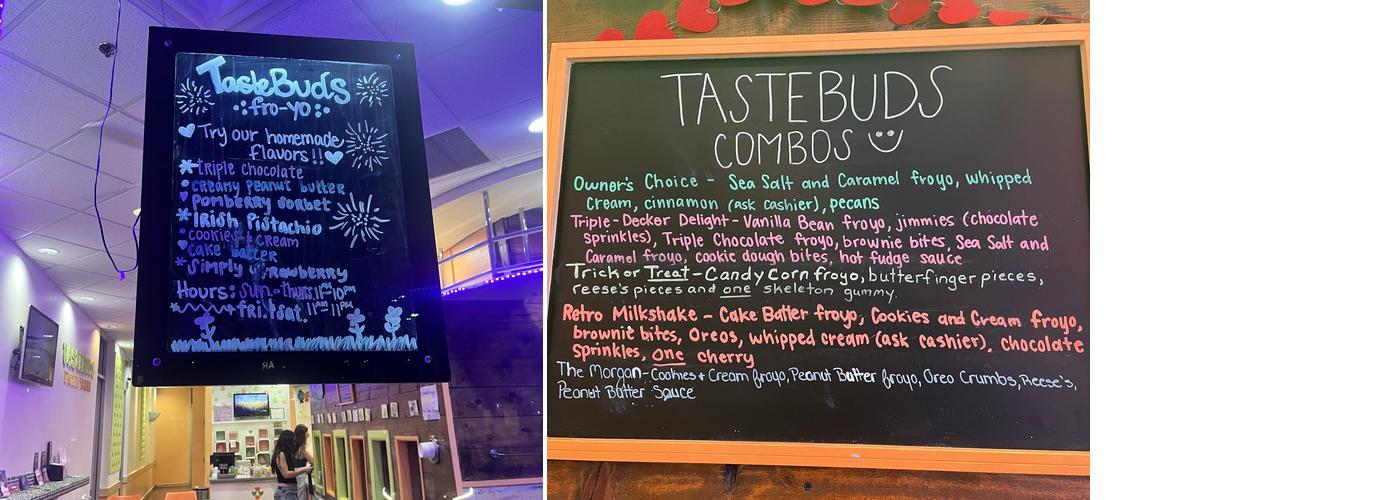 TasteBuds
fro-yo
Try our homemade
flavors!!
triple chocolate
creamy peanut butter
pomberry sorbet
Irish Pistachio
cookies & cream
cake batter
simply strawberry
Hours: sun-thurs. 11am-10pm
+ fri. & sat. 11am-11pm
TASTEBUDS
COMBOS
Owner's Choice - Sea Salt and Caramel froyo, whipped
Cream, cinnamon (ask cashier), pecans
Triple-Decker Delight - Vanilla Bean froyo, jimmies (chocolate
sprinkles), Triple Chocolate froyo, brownie bites, Sea Salt and
Caramel froyo, cookie dough bites, hot fudge sauce
Trick or Treat - Candy Corn froyo, butterfinger pieces,
reese's pieces and one skeleton gummy.
Retro Milkshake - Cake Batter froyo, Cookies and Cream froyo,
brownie bites, Oreos, whipped cream (ask cashier), chocolate
sprinkles, one cherry
The Morgan - Cookies + Cream froyo, Peanut Butter froyo, Oreo Crumbs, Reese's,
Peanut Butter Sauce